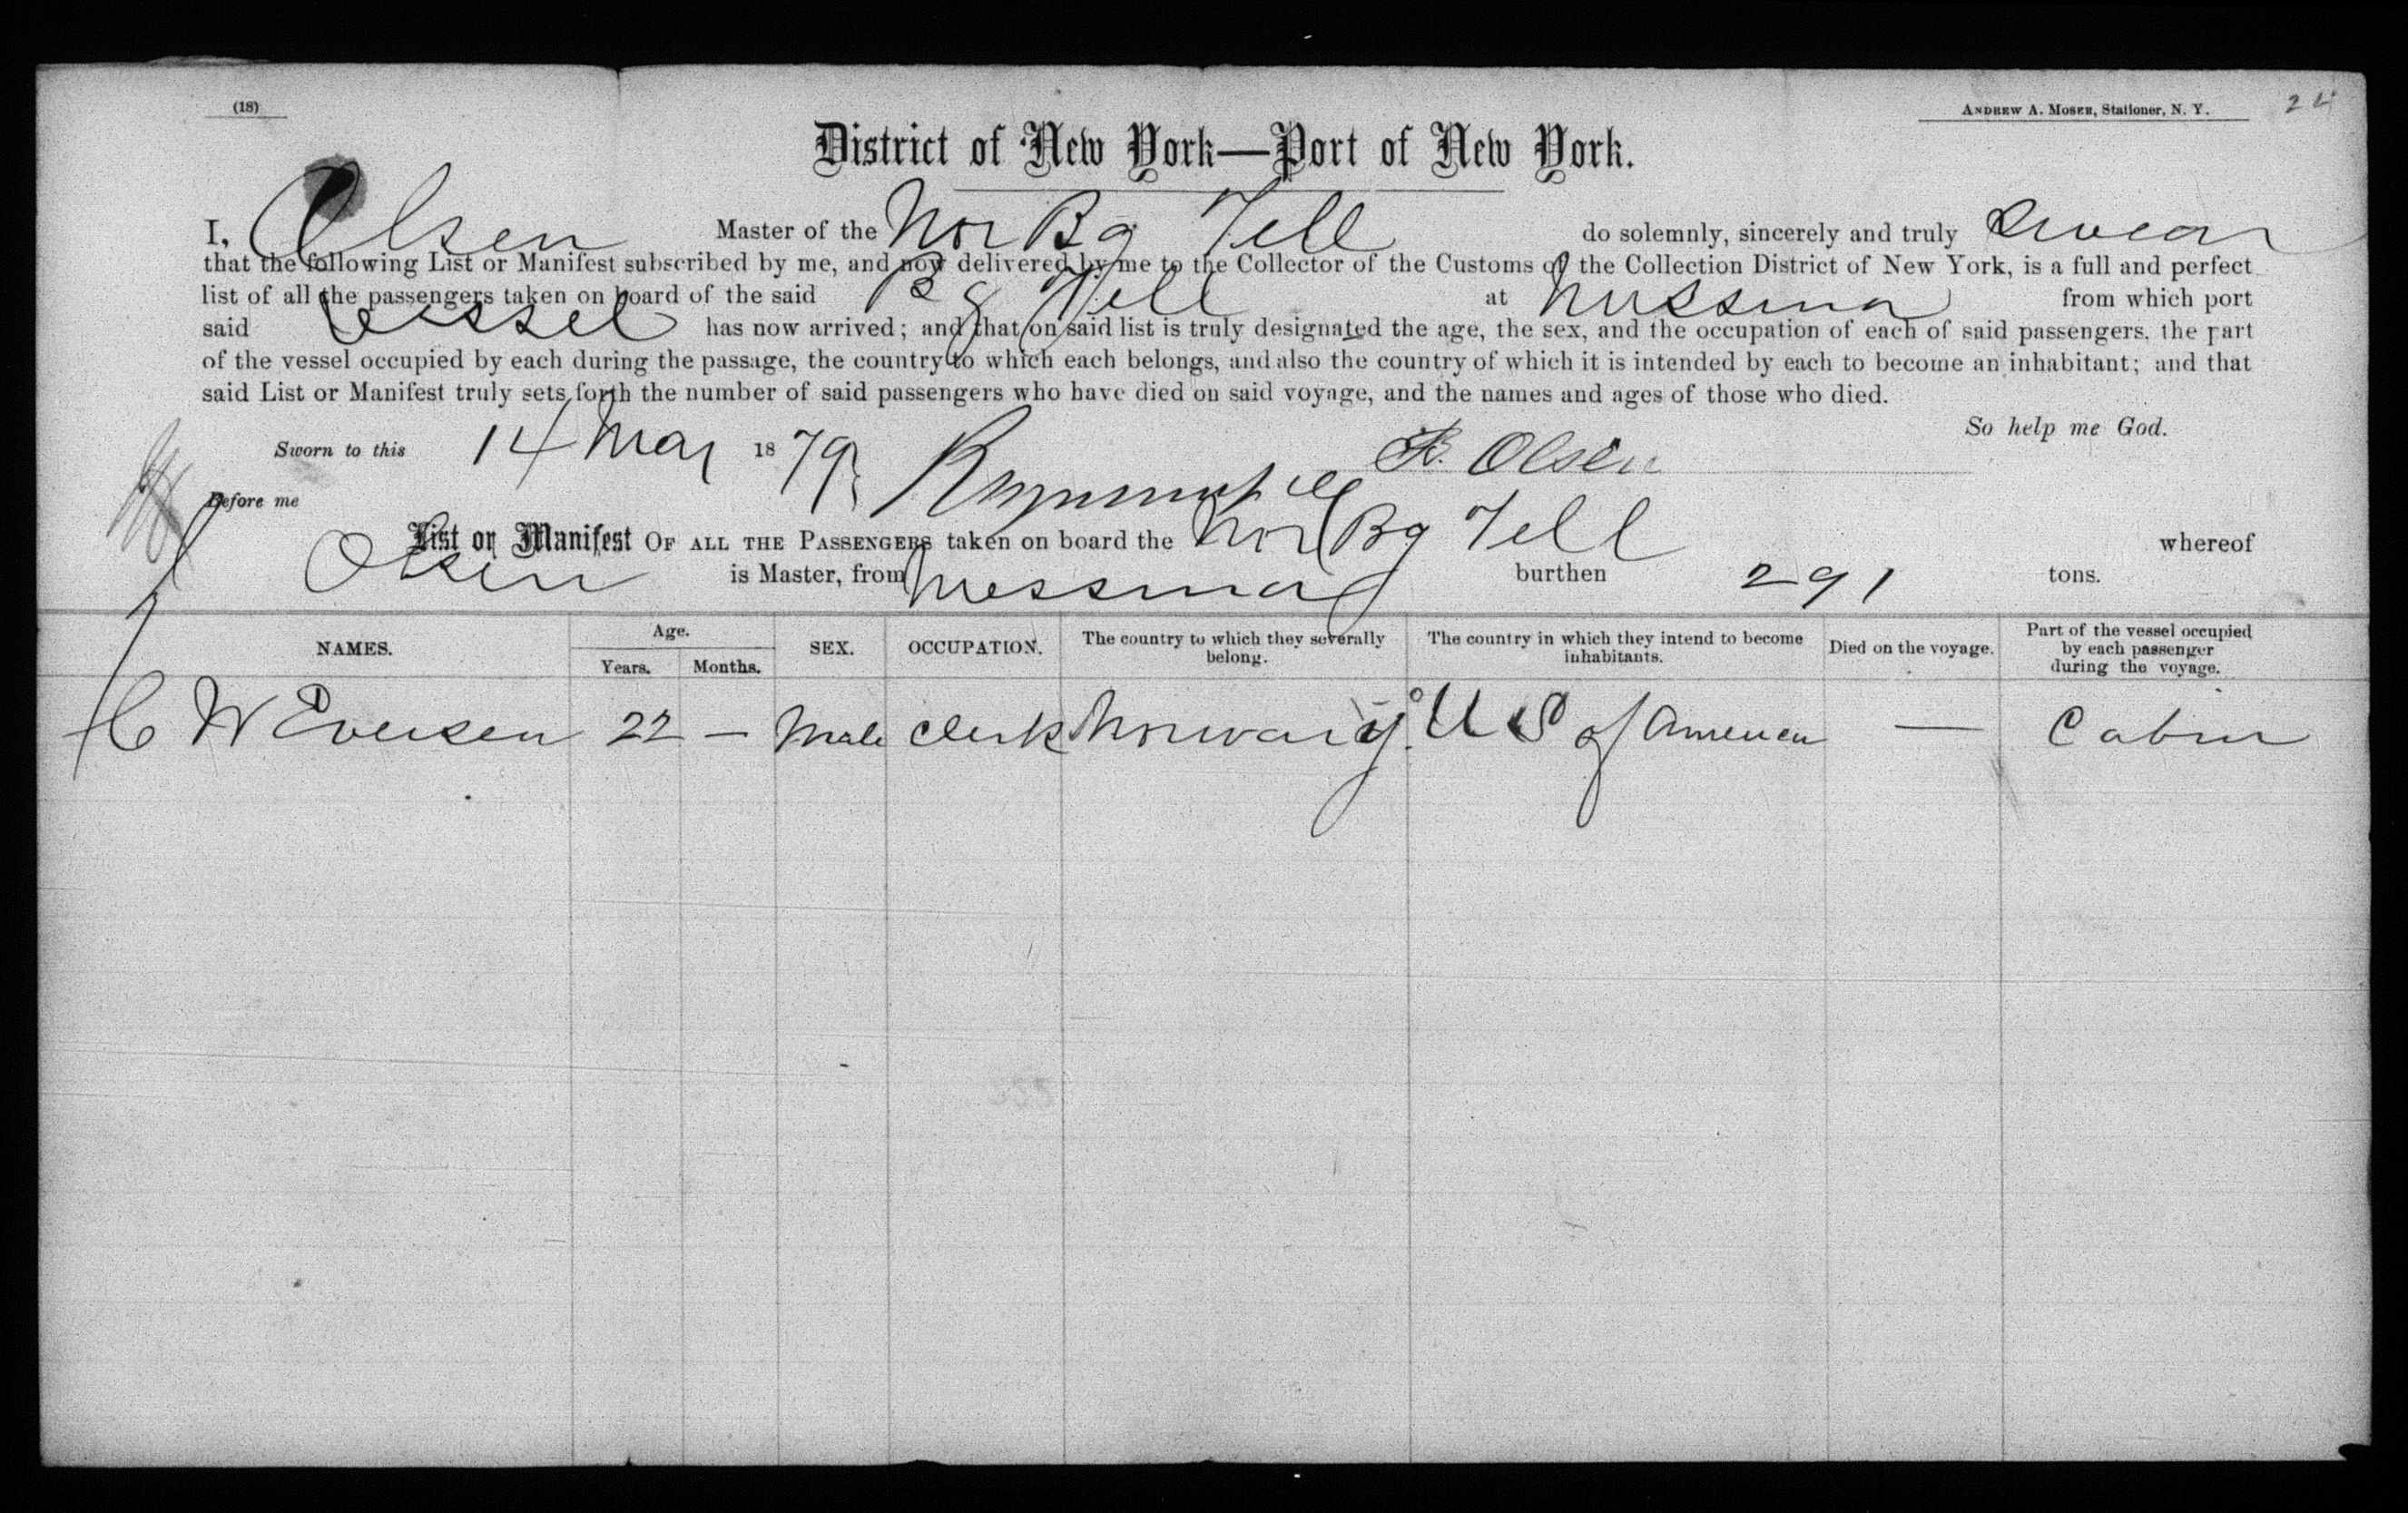 (18)
ANDREW A. MOSER, Stationer, N. Y. 24
District of New York—Port of New York.
I, Olsen Master of the Nor Bg Tell do solemnly, sincerely and truly swear
that the following List or Manifest subscribed by me, and now delivered by me to the Collector of the Customs of the Collection District of New York, is a full and perfect
list of all the passengers taken on board of the said Bg Tell at Messina from which port
said vessel has now arrived; and that on said list is truly designated the age, the sex, and the occupation of each of said passengers, the part
of the vessel occupied by each during the passage, the country to which each belongs, and also the country of which it is intended by each to become an inhabitant; and that
said List or Manifest truly sets forth the number of said passengers who have died on said voyage, and the names and ages of those who died.
So help me God.
Sworn to this 14 Mar 1879 B. Olsen
Before me
List or Manifest OF ALL THE PASSENGERS taken on board the Nor Bg Tell whereof
Olsen is Master, from Messina burthen 291 tons.
NAMES. Age. Years. Months. SEX. OCCUPATION. The country to which they severally belong. The country in which they intend to become inhabitants. Died on the voyage. Part of the vessel occupied by each passenger during the voyage.
C W Eversen 22 — Male Clerk Norway U S of America — Cabin